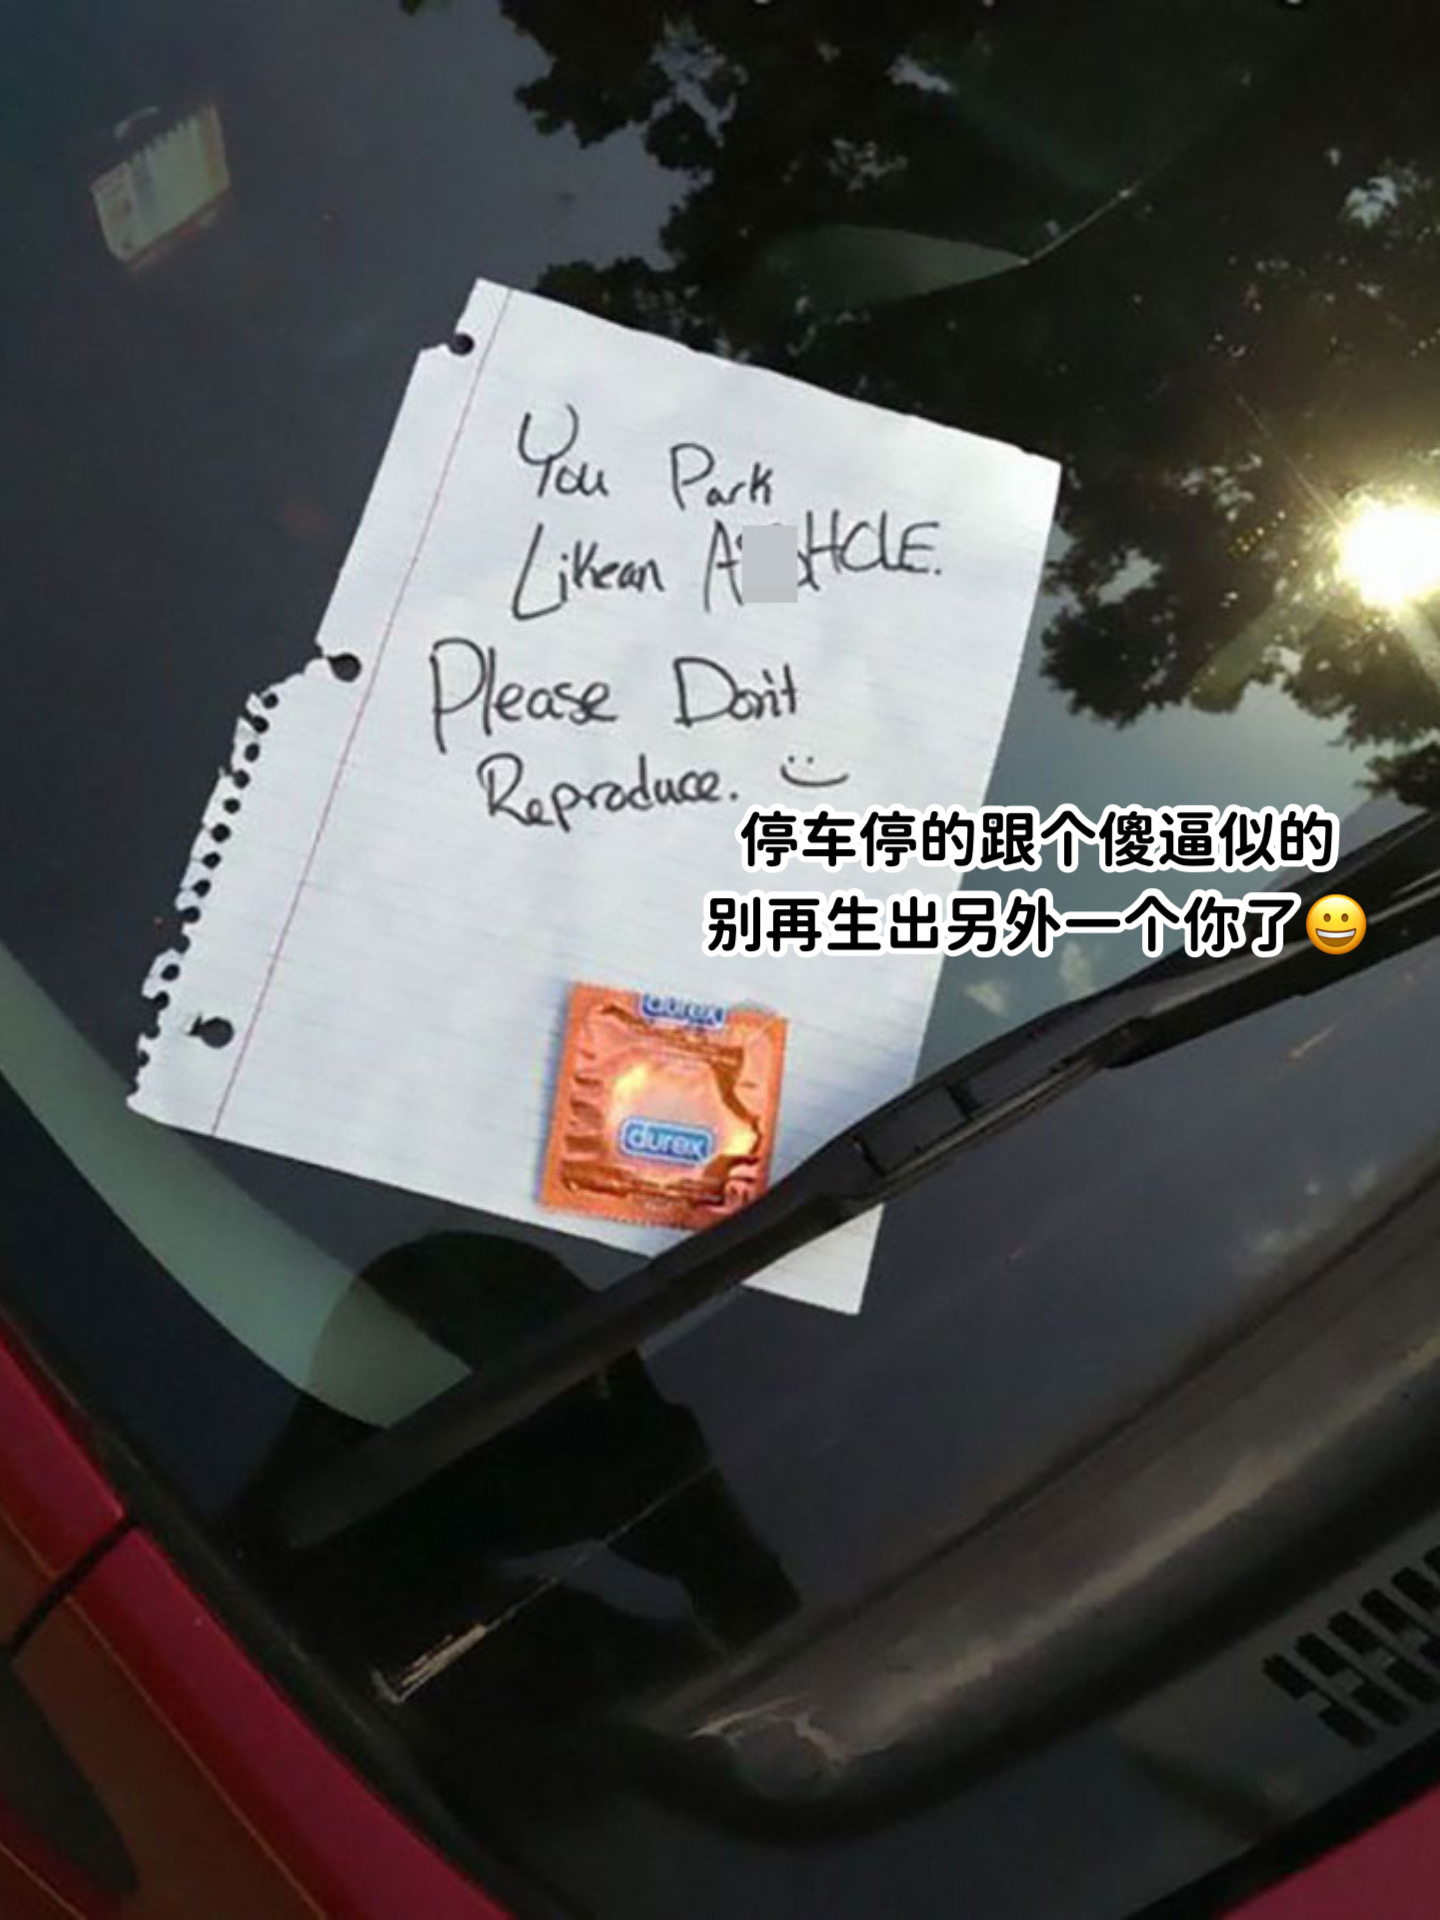 You Park
Like an A HOLE.
Please Don't
Reproduce.
停车停的跟个傻逼似的
别再生出另外一个你了😀
durex
durex